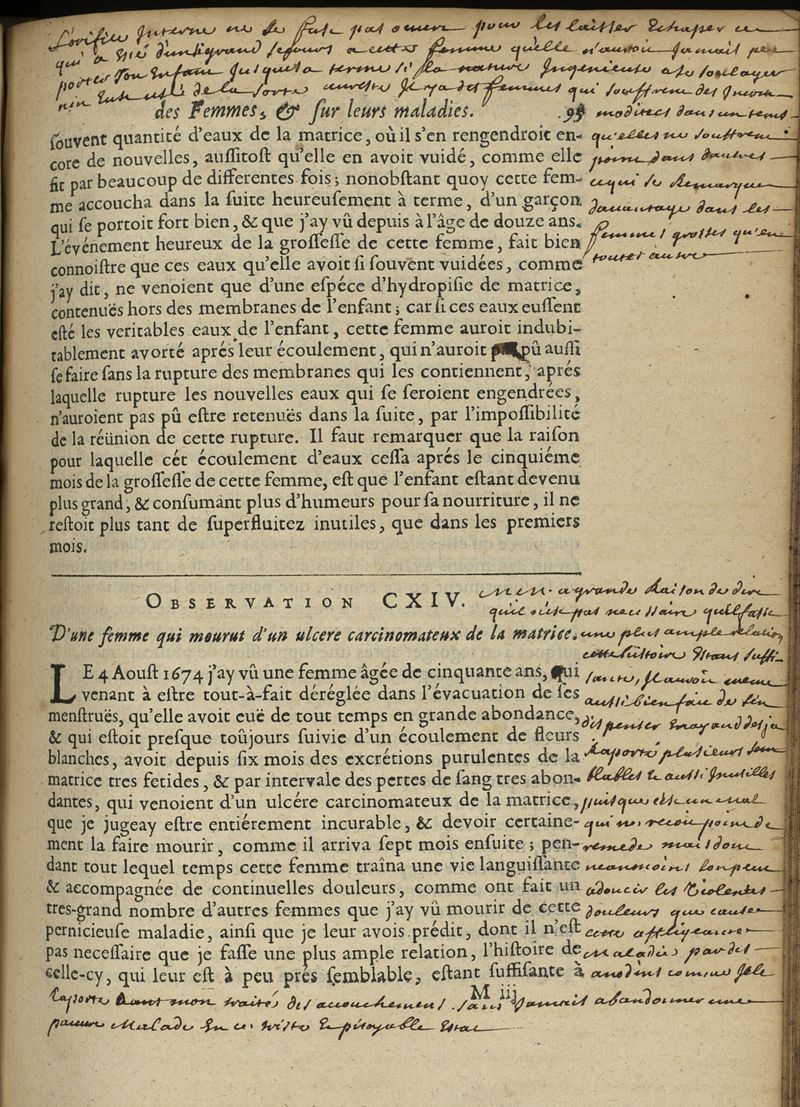 L'orifice Interne ne se fust pas ouvert pour les laisser Echaper ce
qui a Esté d'un si grand secours a cette femme qu'elle n'auroit Jamais peu
porter son Enfant Jusques a terme si la nature Ingenieuse a se soulager
n'en Eut usé de la sorte au reste Il y a des femmes qui souffrent des Incom-
des Femmes, & sur leurs maladies. 93
modites dans un tems
qu'elles ne souffrent
point dans d'autres
ce qui se Remarque
davantage dans les
femmes grosses qu'en
toutes autres
souvent quantité d'eaux de la matrice, où il s'en rengendroit en-
core de nouvelles, aussitost qu'elle en avoit vuidé, comme elle
fit par beaucoup de differentes fois; nonobstant quoy cette fem-
me accoucha dans la suite heureusement à terme, d'un garçon
qui se portoit fort bien, & que j'ay vû depuis à l'âge de douze ans.
L'événement heureux de la grossesse de cette femme, fait bien
connoistre que ces eaux qu'elle avoit si souvent vuidées, comme
j'ay dit, ne venoient que d'une espéce d'hydropisie de matrice,
contenuës hors des membranes de l'enfant; car si ces eaux eussent
esté les veritables eaux de l'enfant, cette femme auroit indubi-
tablement avorté aprés leur écoulement, qui n'auroit pû aussi
se faire sans la rupture des membranes qui les contiennent, aprés
laquelle rupture les nouvelles eaux qui se seroient engendrées,
n'auroient pas pû estre retenuës dans la suite, par l'impossibilité
de la réünion de cette rupture. Il faut remarquer que la raison
pour laquelle cét écoulement d'eaux cessa aprés le cinquiéme
mois de la grossesse de cette femme, est que l'enfant estant devenu
plus grand, & consumant plus d'humeurs pour sa nourriture, il ne
restoit plus tant de superfluitez inutiles, que dans les premiers
mois.
OBSERVATION CXIV.
D'une femme qui mourut d'un ulcere carcinomateux de la matrice.
LE 4 Aoust 1674 j'ay vû une femme âgée de cinquante ans, qui
venant à estre tout-à-fait déréglée dans l'évacuation de ses
menstruës, qu'elle avoit euë de tout temps en grande abondance,
& qui estoit presque toûjours suivie d'un écoulement de fleurs
blanches, avoit depuis six mois des excrétions purulentes de la
matrice tres fetides, & par intervale des pertes de sang tres abon-
dantes, qui venoient d'un ulcére carcinomateux de la matrice,
que je jugeay estre entiérement incurable, & devoir certaine-
ment la faire mourir, comme il arriva sept mois ensuite; pen-
dant tout lequel temps cette femme traîna une vie languissante
& accompagnée de continuelles douleurs, comme ont fait un
tres-grand nombre d'autres femmes que j'ay vû mourir de cette
pernicieuse maladie, ainsi que je leur avois prédit, dont il n'est
pas necessaire que je fasse une plus ample relation, l'histoire de
celle-cy, qui leur est à peu prés semblable, estant suffisante à
M iij
a grande Raison de dire
qu'il n'est pas necessaire qu'il fasse
une plus ample relation
cette histoire Etant suffi-
sante, Il auroit mesme
aussi bien fait de s'en
dispenser En ayant desja
Raporté plusieurs sem-
blables & aussi Inutilles
puisque c'est un mal
qui ne recoit point de
remede mais dont
neanmoins lon peut
adoucir les Violentes
douleurs que cause
cette affligeante
maladie par des
anodins comme Je le
raporte dans mon traité des accouchemens. sans Jamais abandonner une
pauvre Malade En ce triste & pitoyable Etat